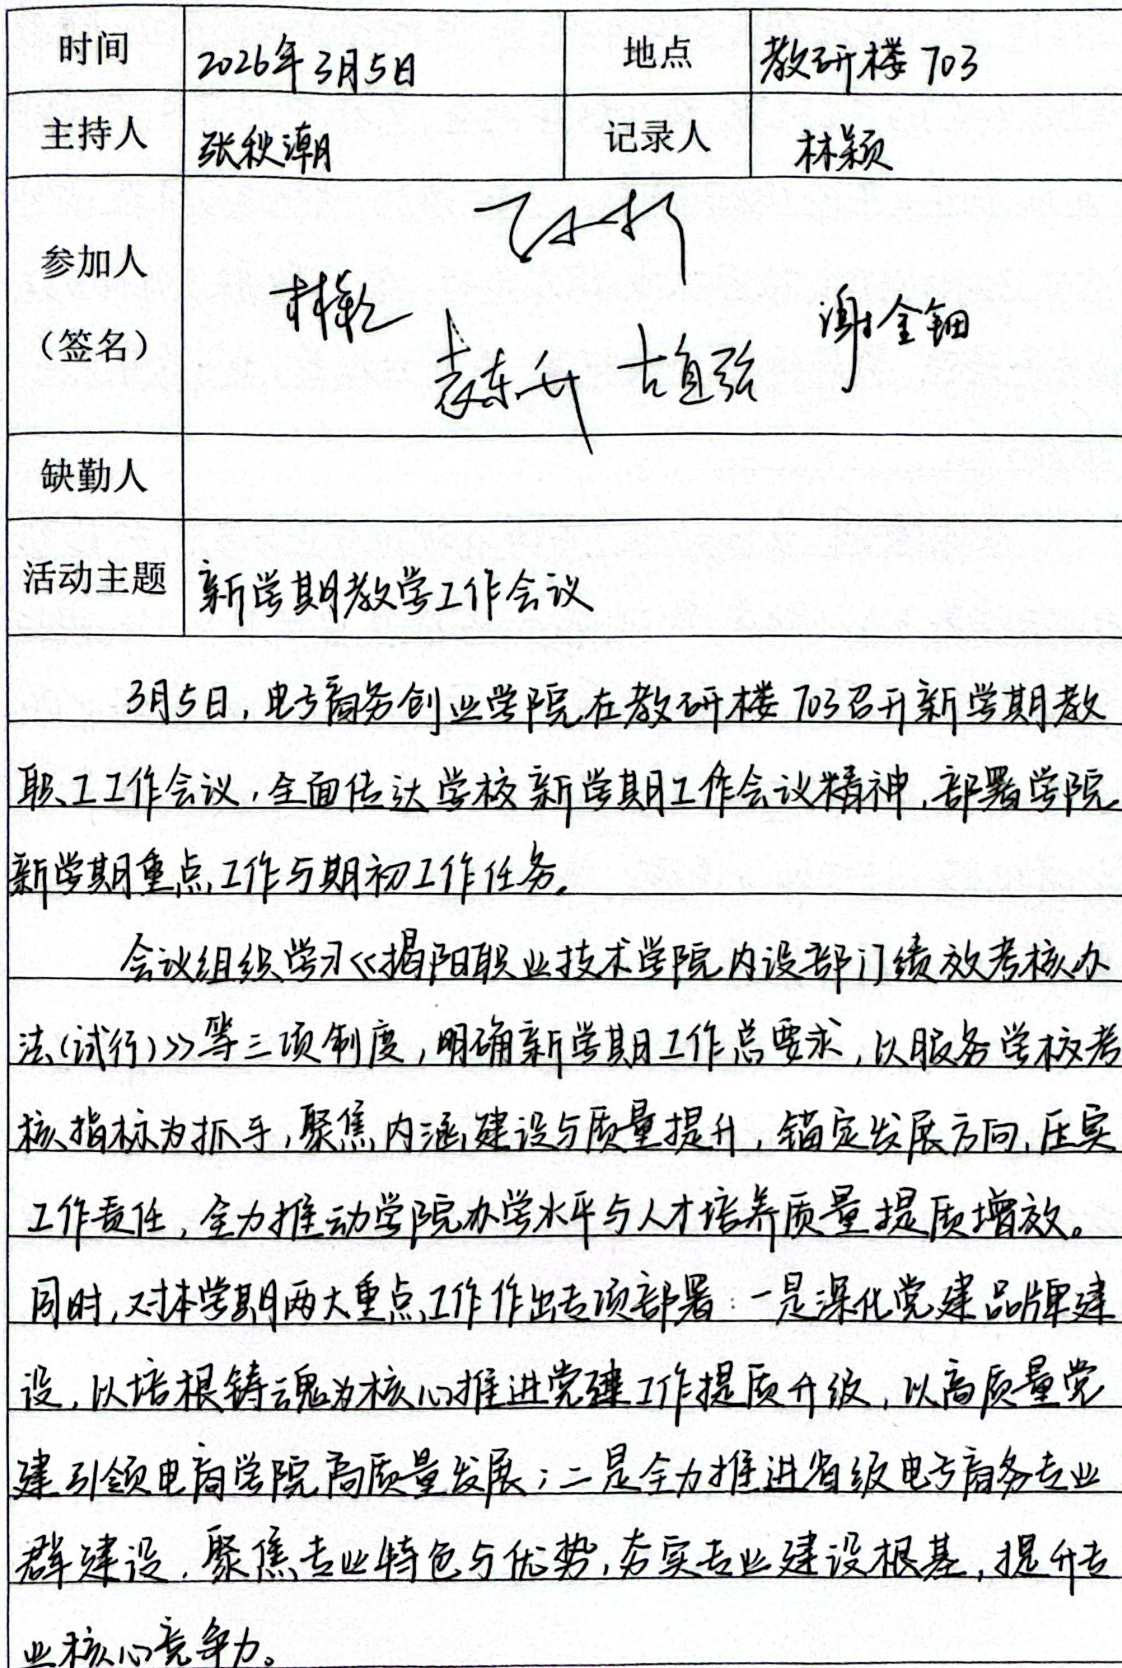 时间 2026年3月5日 地点 教研楼703
主持人 张秋潮 记录人 林颖
参加人
（签名）
林乾
谢金钿
袁东升 古自强
缺勤人
活动主题 新学期教学工作会议
3月5日，电子商务创业学院在教研楼703召开新学期教
职工工作会议，全面传达学校新学期工作会议精神，部署学院
新学期重点工作与期初工作任务。
会议组织学习《揭阳职业技术学院内设部门绩效考核办
法(试行)》等三项制度，明确新学期工作总要求，以服务学校考
核指标为抓手，聚焦内涵建设与质量提升，锚定发展方向，压实
工作责任，全力推动学院办学水平与人才培养质量提质增效。
同时，对本学期两大重点工作作出专项部署：一是深化党建品牌建
设，以培根铸魂为核心推进党建工作提质升级，以高质量党
建引领电商学院高质量发展；二是全力推进省级电子商务专业
群建设，聚焦专业特色与优势，夯实专业建设根基，提升专
业核心竞争力。